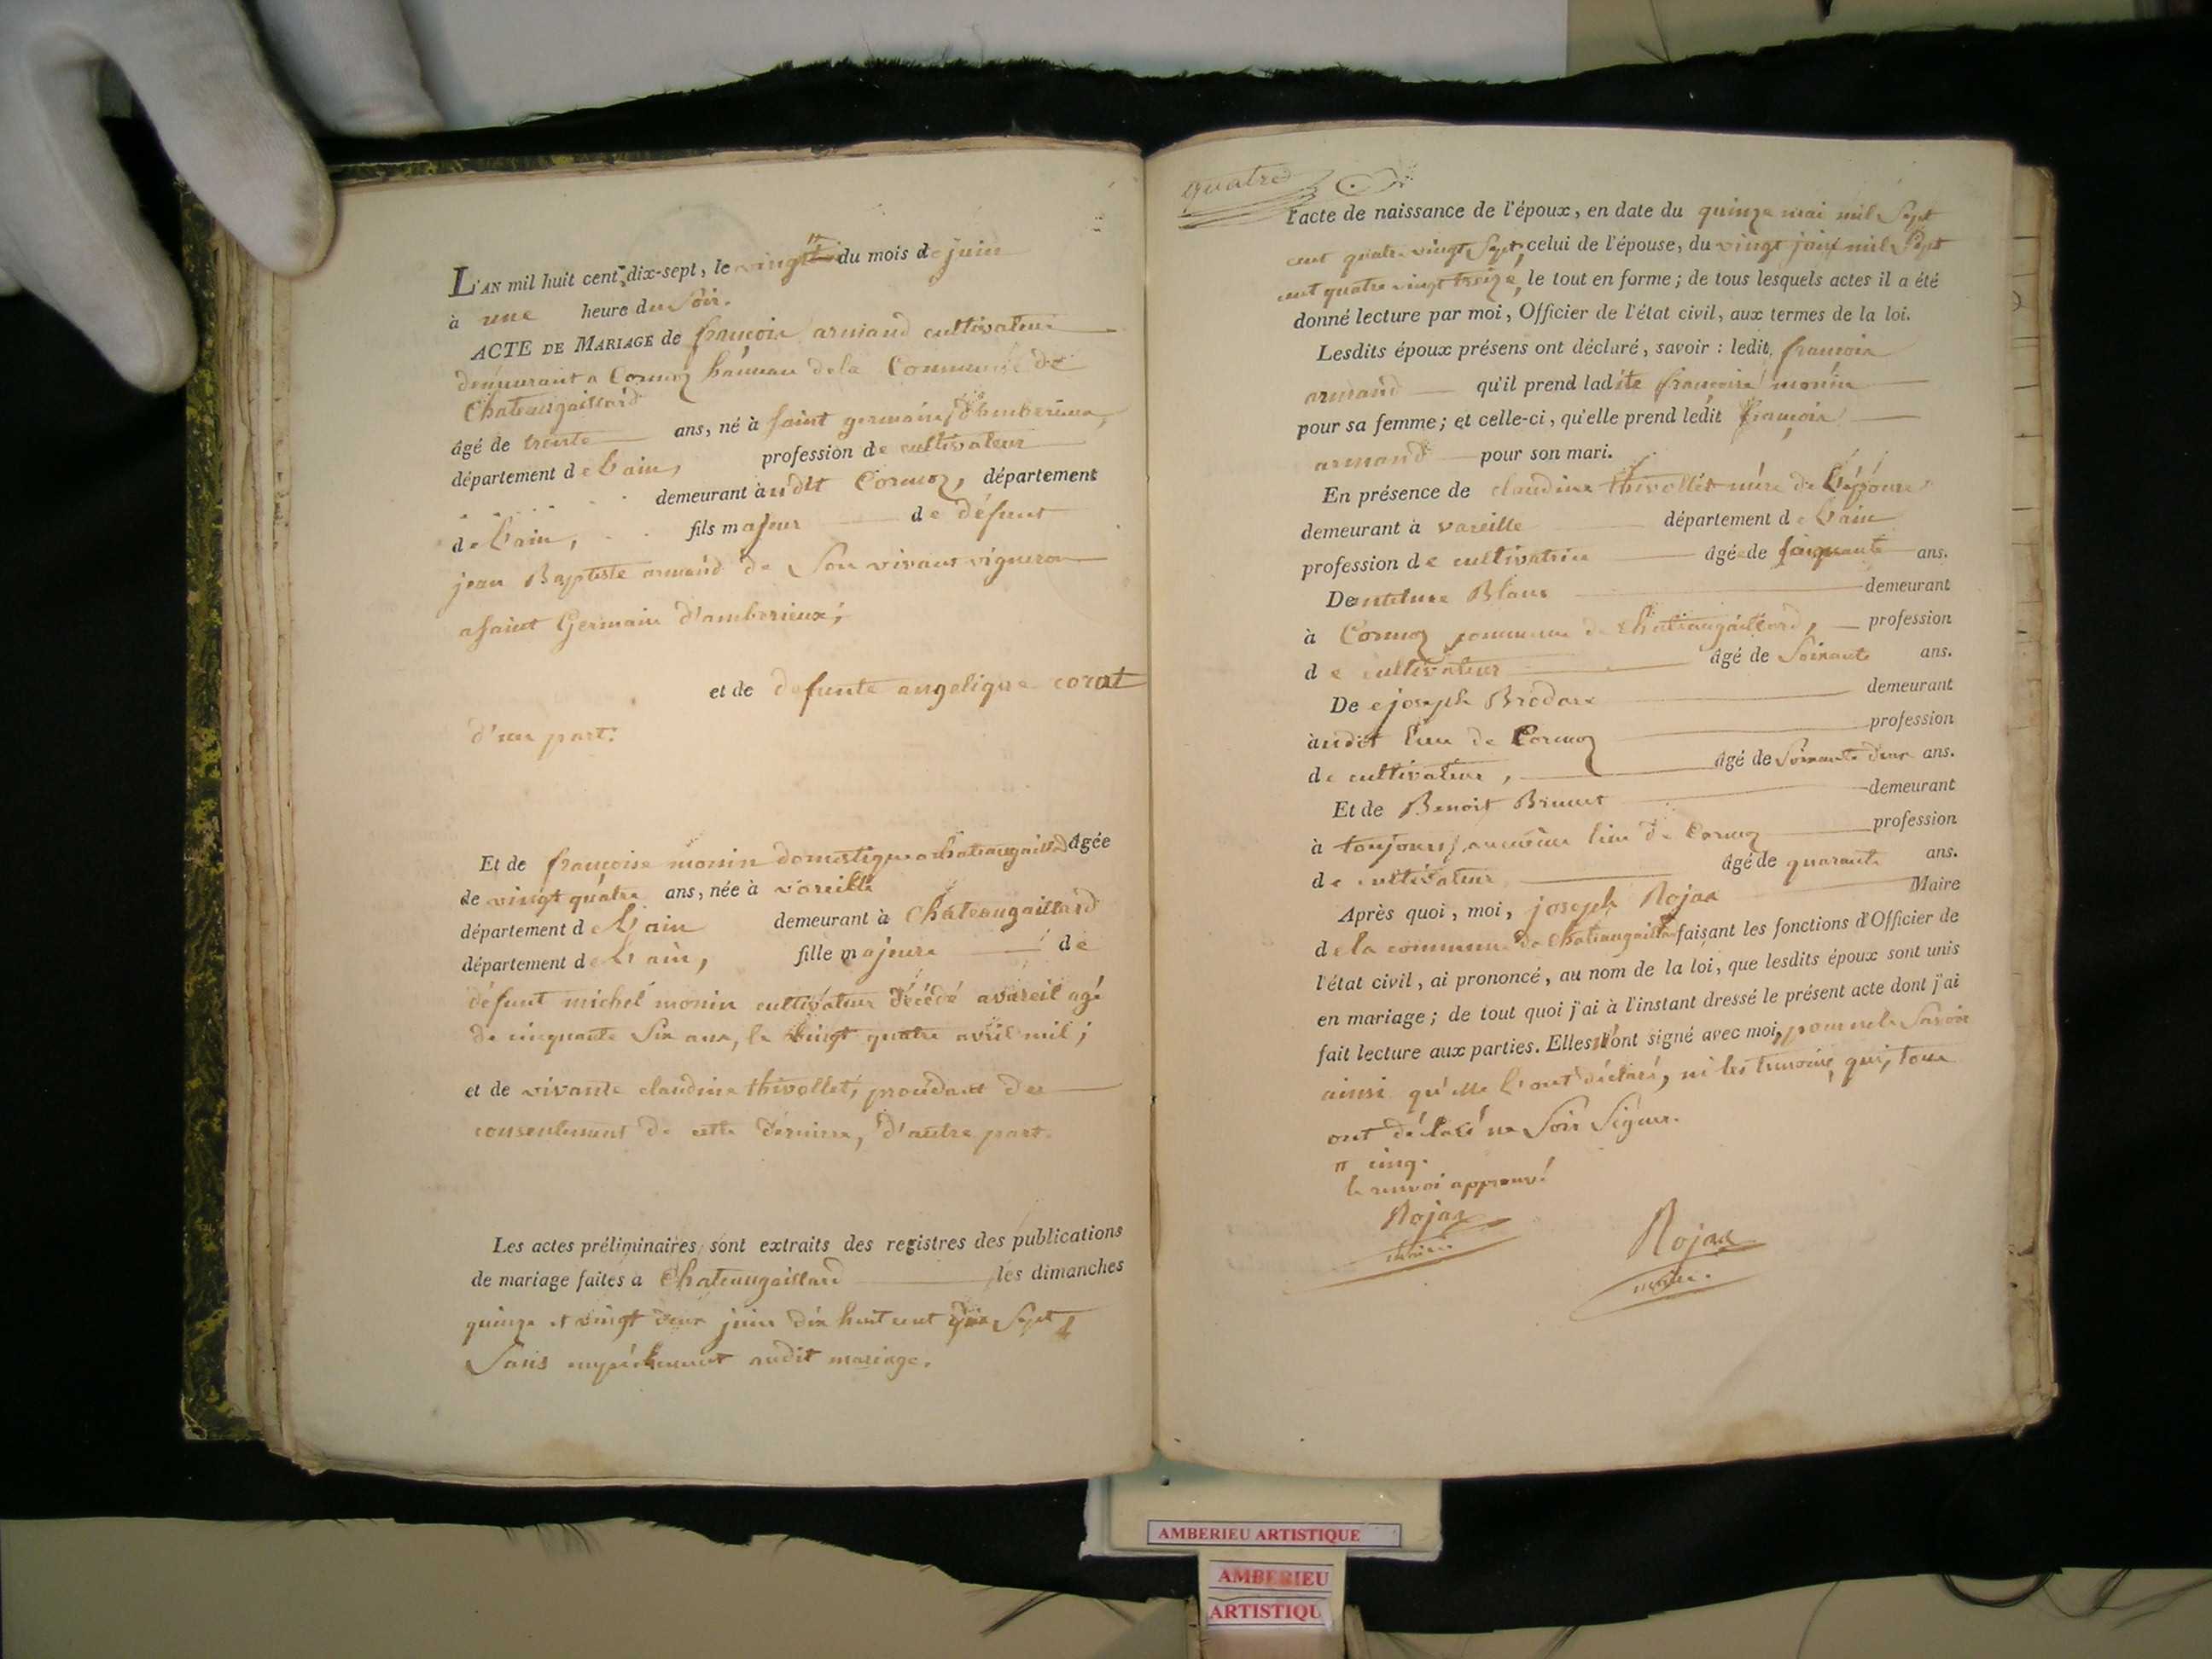 L'AN mil huit cent dix-sept, le vingt " du mois de juin
à une heure du Soir.
ACTE DE MARIAGE de françois armand cultivateur
demeurant a Cormoz hameau de la Commune de
Chateaugaillard
âgé de trente ans, né à saint germain d'amberieux,
département de l'ain, profession de cultivateur
demeurant audit Cormoz, département
de l'ain, fils majeur de défunt
jean Baptiste armand de Son vivant vigneron
a saint Germain d'amberieux;
et de defunte angelique corat
d'une part:
Et de françoise monin domestique a chateaugaillard âgée
de vingt quatre ans, née à vareille
département de l'ain demeurant à Chateaugaillard
département de l'ain, fille majeure de
défunt michel monin cultivateur décédé a vareil agé
de cinquante Six ans, le vingt quatre avril mil;
et de vivante claudine thivollet, procédant du
consentement de cette dernière, d'autre part.
Les actes préliminaires sont extraits des registres des publications
de mariage faites à Chateaugaillard les dimanches
quinze et vingt deux juin dix huit cent dix Sept
Sans empéchement audit mariage.
quatre
l'acte de naissance de l'époux, en date du quinze mai mil Sept
cent quatre vingt Sept, celui de l'épouse, du vingt juin mil Sept
cent quatre vingt treize, le tout en forme; de tous lesquels actes il a été
donné lecture par moi, Officier de l'état civil, aux termes de la loi.
Lesdits époux présens ont déclaré, savoir: ledit françois
armand qu'il prend ladite françoise monin
pour sa femme; et celle-ci, qu'elle prend ledit françois
armand pour son mari.
En présence de claudine thivollet mère de l'épouse
demeurant à vareille département de l'ain
profession de cultivatrice âgée de sinquante ans.
De Blanc demeurant
à Cormoz commune de chateaugaillard, profession
de cultivateur âgé de Soixante ans.
De joseph Brodare demeurant
audit lieu de Cormoz profession
de cultivateur, âgé de Soixante deux ans.
Et de Benoit Brunet demeurant
à toujours au même lieu de Cormoz profession
de cultivateur âgé de quarante ans.
Après quoi, moi, joseph Rojax Maire
de la commune de chateaugaillard faisant les fonctions d'Officier de
l'état civil, ai prononcé, au nom de la loi, que lesdits époux sont unis
en mariage; de tout quoi j'ai à l'instant dressé le présent acte dont j'ai
fait lecture aux parties. Elles n'ont signé avec moi, pour ne le Savoir
ainsi qu'elle l'ont déclaré, ni les temoins, qui, tous
ont déclaré ne Soir Signer.
" cinq.
le renvoi approuvé
Rojax
maire.
Rojax
maire.
AMBERIEU ARTISTIQUE
AMBERIEU
ARTISTIQU